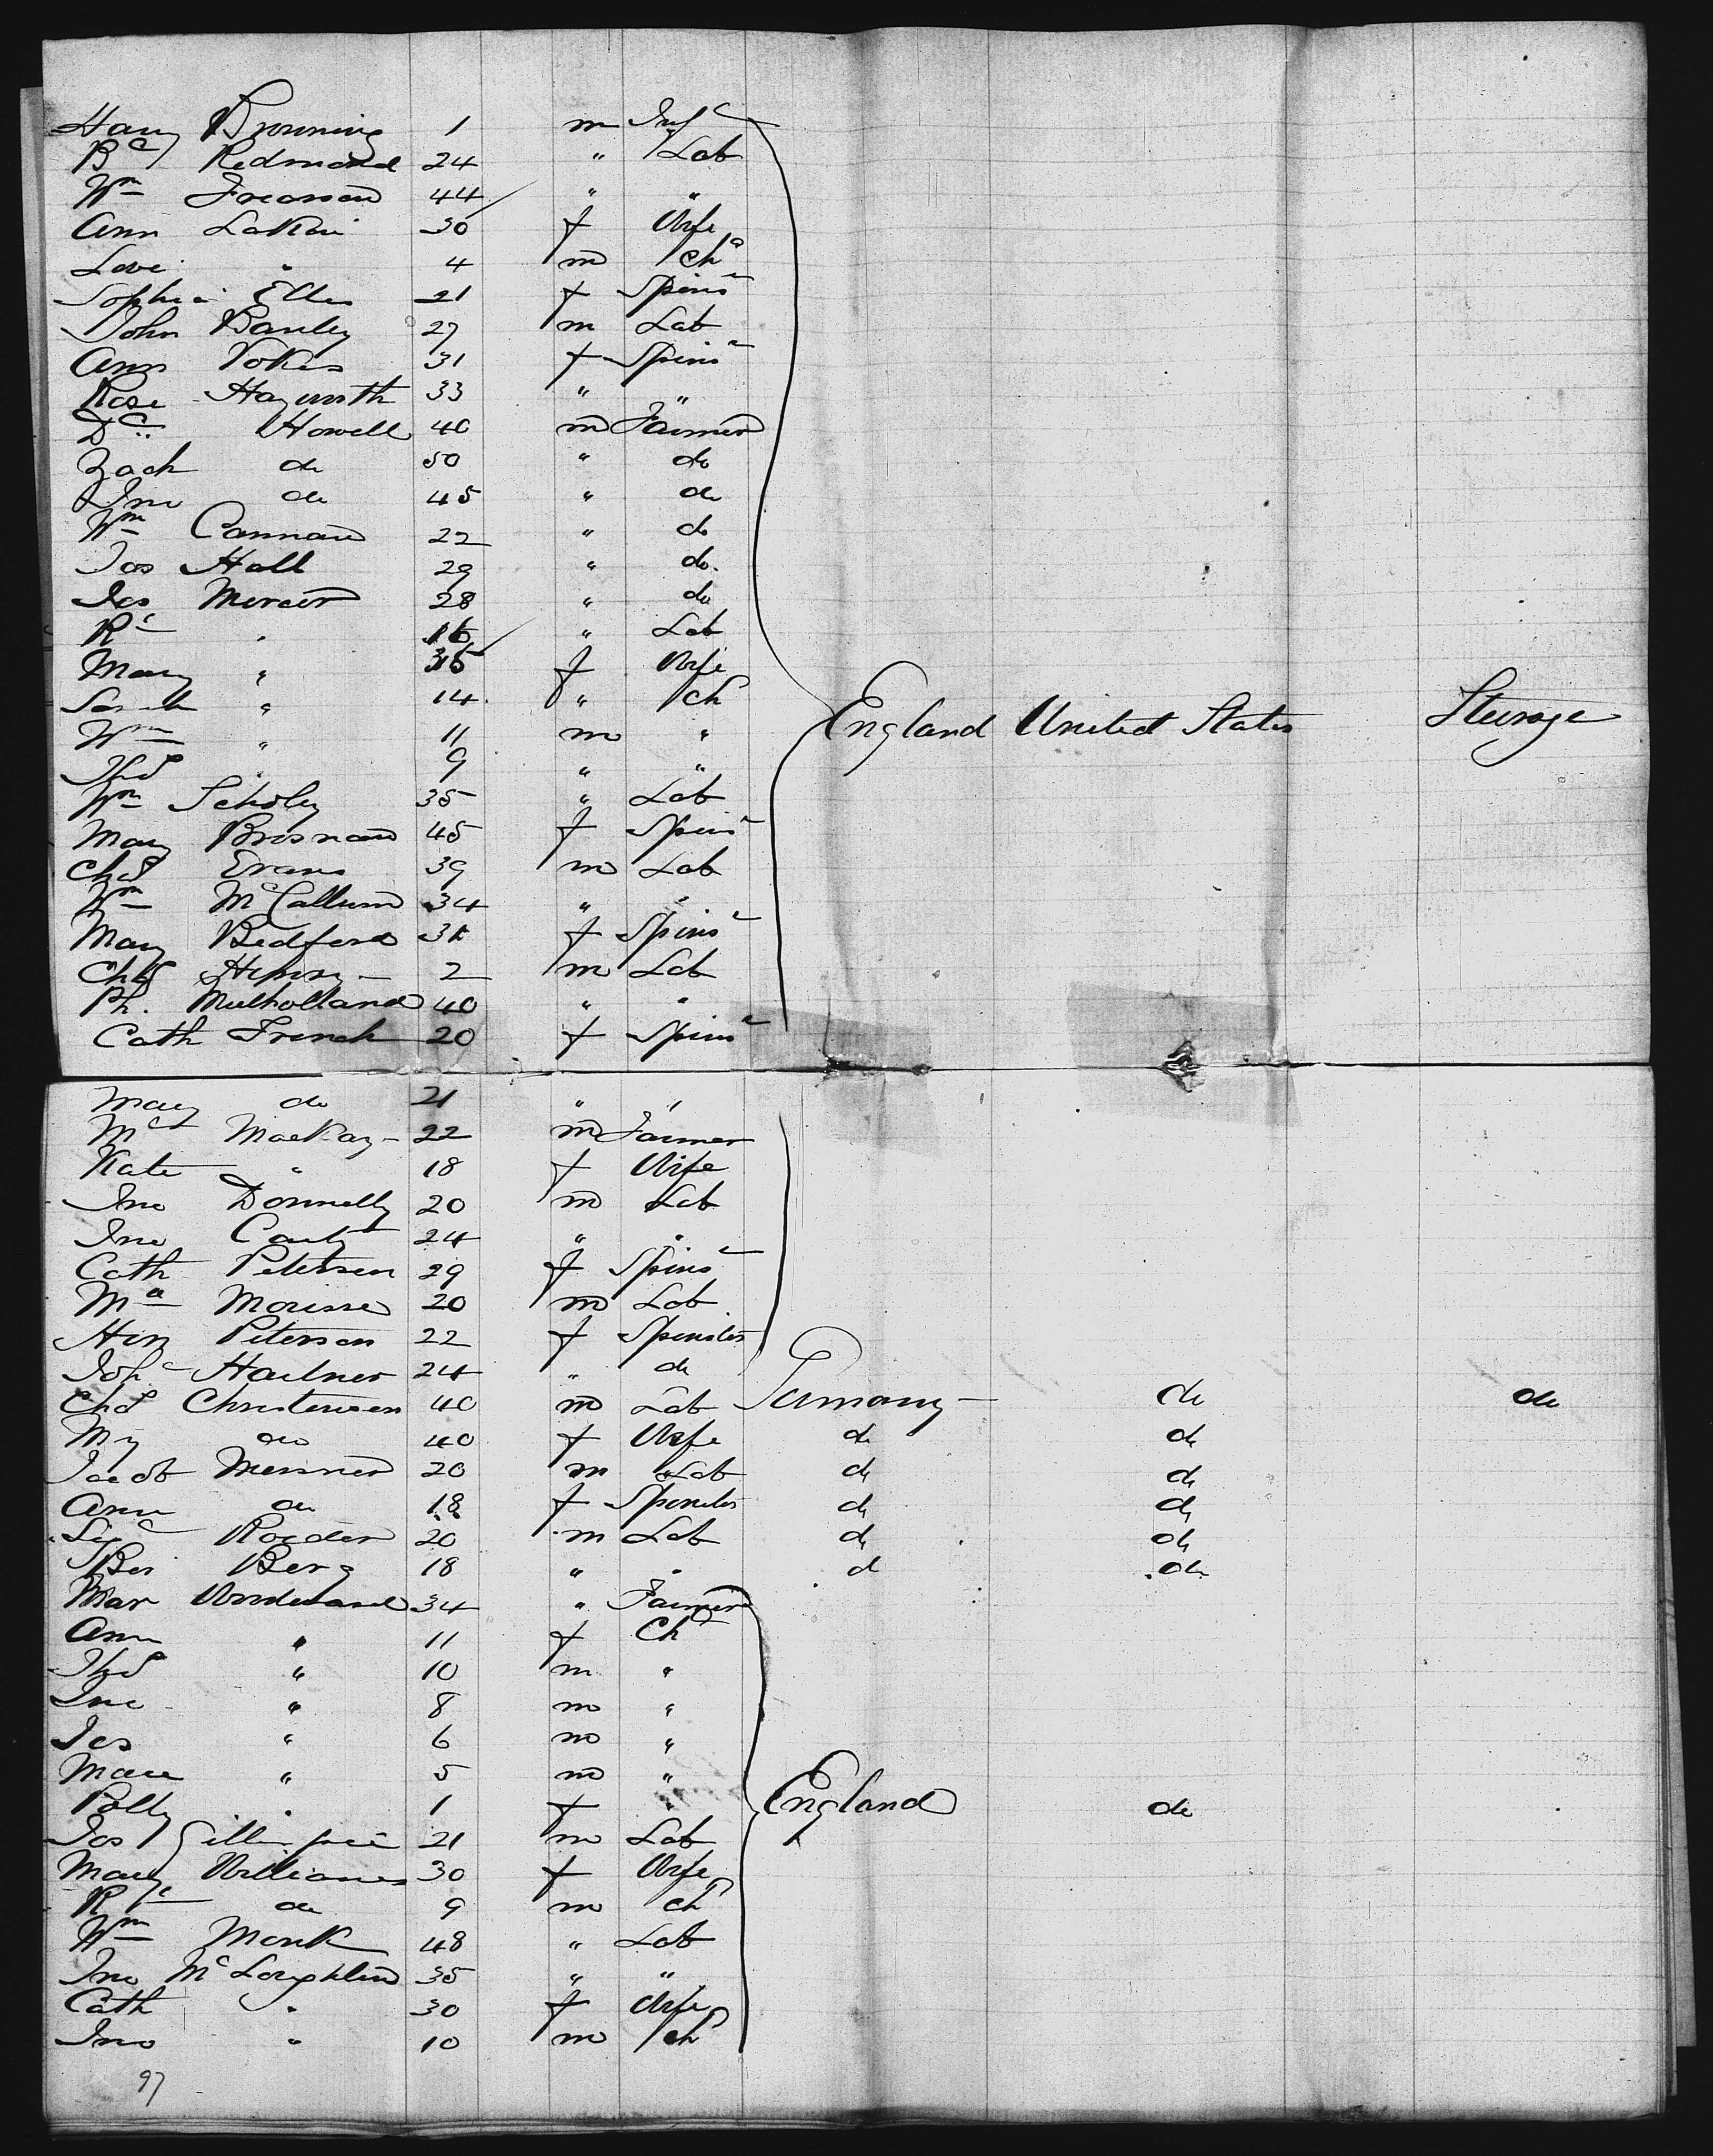 Harry Browning 1 m Inf
Redmond 24 " Lab
Wm Freeman 44 " "
Ann Lakin 30 f Wife
Levi " 4 m Ch
Sophia Ellis 21 f Spins
John Banley 27 m Lab
Ann Vokes 31 f Spins
Rose Hayworth 33 " "
Howell 40 m Farmer
Zach do 50 " do
Jno do 45 " do
Wm Cannan 22 " do
Jos Hall 29 " do
Jas Mercer 28 " do
Rd " 16 " Lab
Mary " 36 f Wife
Sarah " 14 " Ch
Wm " 11 m " England United States Steerage
Thos " 9 " "
Wm Scholey 35 " Lab
Mary Brosnan 45 f Spins
Chas Evans 39 m Lab
Wm McCallum 34 " "
Mary Bedford 31 f Spins
Chas Henry 2 m Lab
Pk. Mulholland 40 " "
Cath French 20 f Spins
Mary do 21 " "
MacKay 22 m Farmer
Kate " 18 f Wife
Jno Donnelly 20 m Lab
Jno 24 " "
Cath Petersen 29 f Spins
Ma 20 m Lab
Petersen 22 f Spinster
24 " do
Chas Christensen 40 m Lab Germany do do
My do 40 f Wife do do
Jacob Messner 20 m Lab do do
Ann do 18 f Spinster do do
Roeder 20 m Lab do do
Berg 18 " " d do
Mar Woodward 34 " Farmer
Ann " 11 f Ch
Thos " 10 m "
Jno " 8 m "
Jas " 6 m "
" 5 m "
Polly " 1 f " England do
Jos Gillespie 21 m Lab
Mary Williams 30 f Wife
Rd do 9 m Ch
Wm Monk 48 " Lab
Jno McLoughlin 35 " "
Cath " 30 f Wife
Jno " 10 m Ch
97